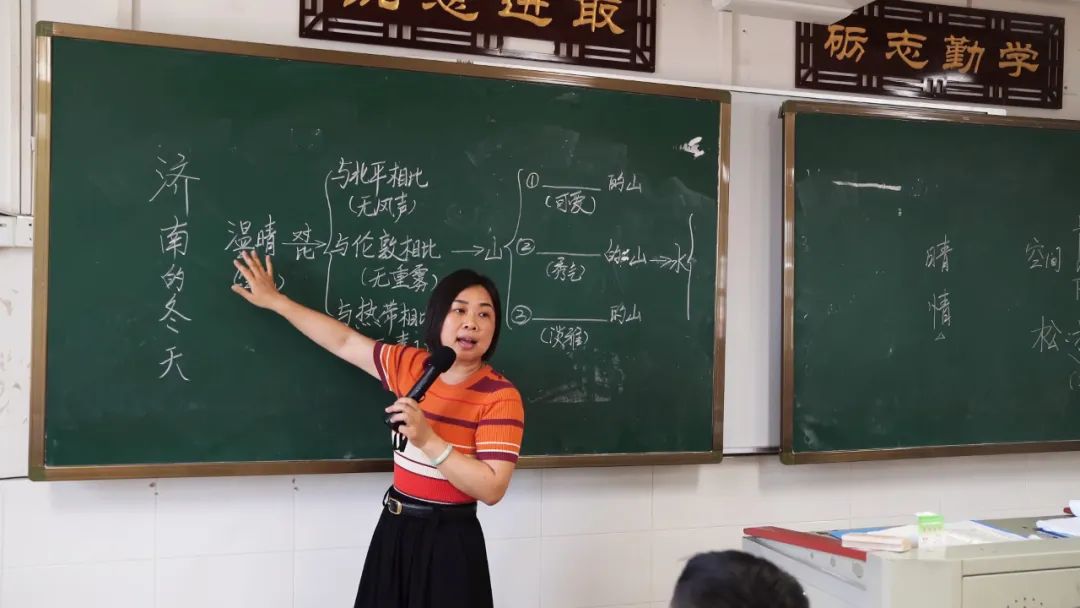 砺志勤学
济南的冬天
温晴
对比
与北平相比
(无风声)
与伦敦相比
(无重雾)
与热带相比
山
① 的山
(可爱)
② 的山
(秀气)
② 的山
(淡雅)
水
晴
情
空间
松